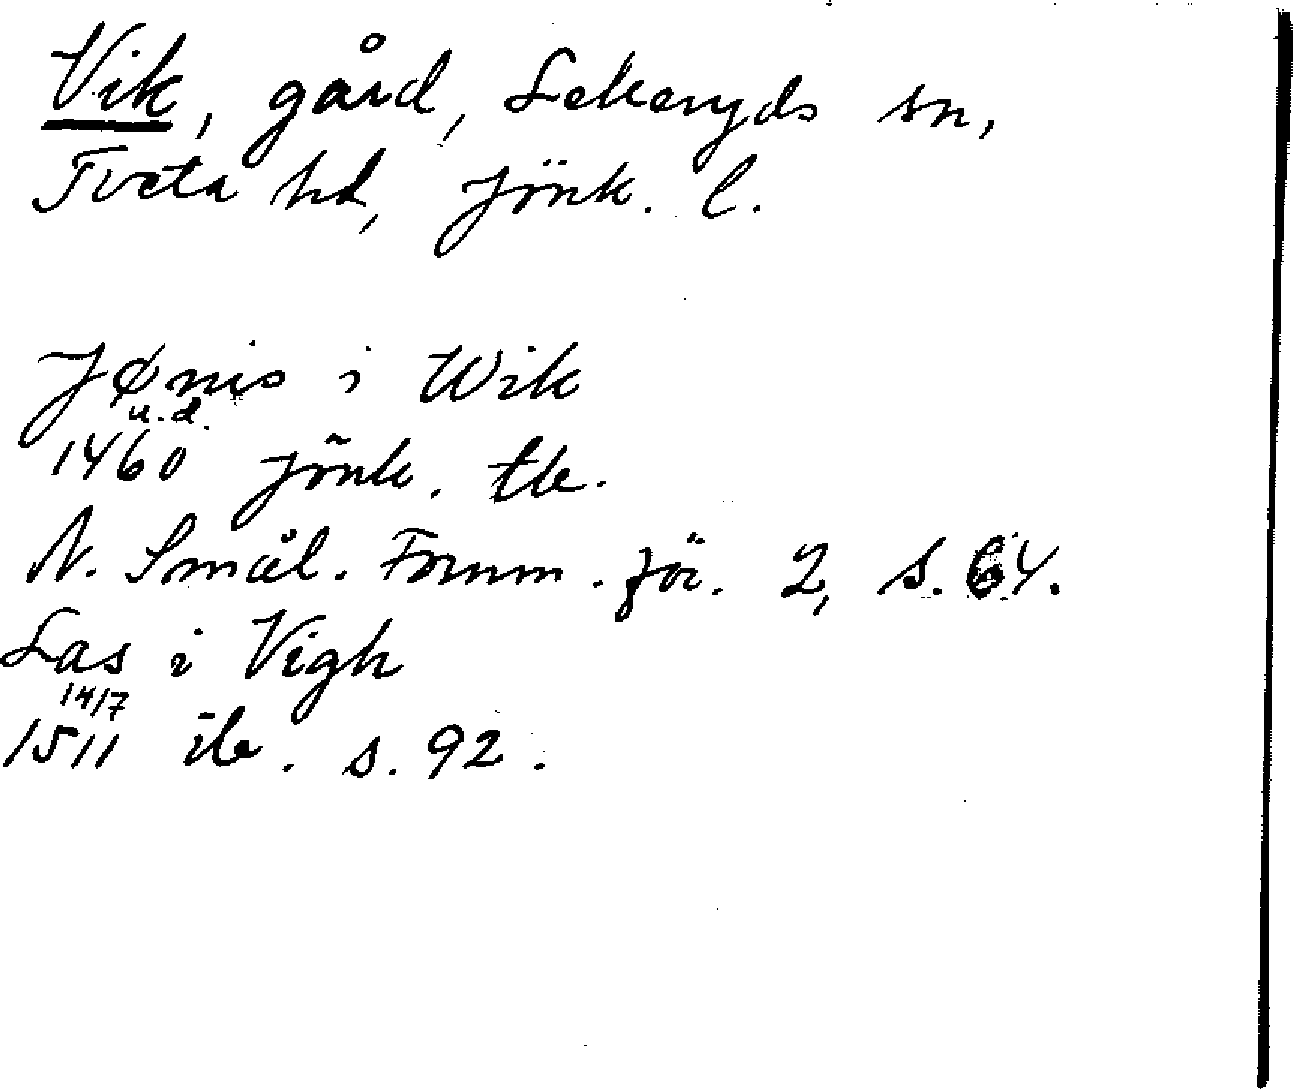 Vik, gård, Lekeryds sn,
Tveta hd, Jönk. l.
Jønis i Wik
u.d.
1460 Jönk. tb.
N. Smål. Fornm. för. 2, s. 64.
Las i Vigh
14/7
1511 ib. s. 92.